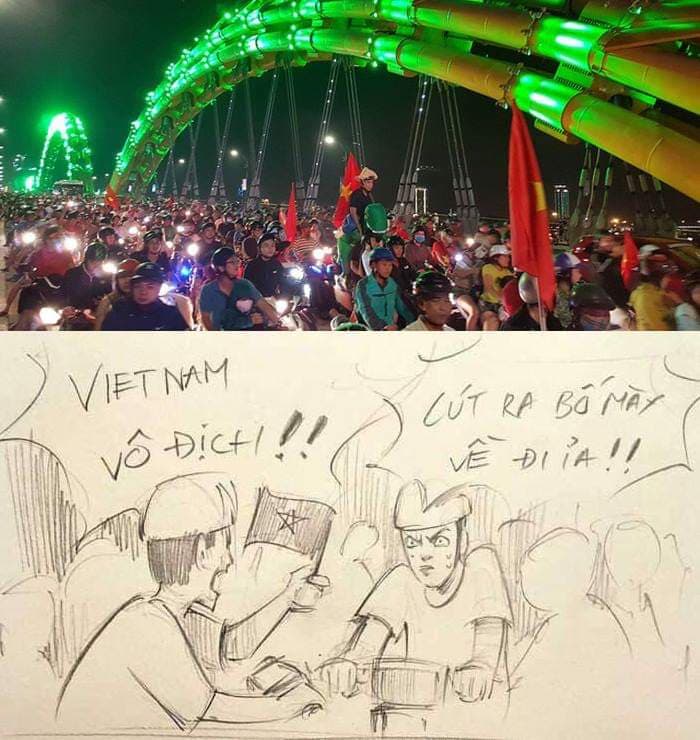 VIETNAM
VÔ ĐỊCH!!
CÚT RA BỐ MÀY
VỀ ĐI ỈA!!